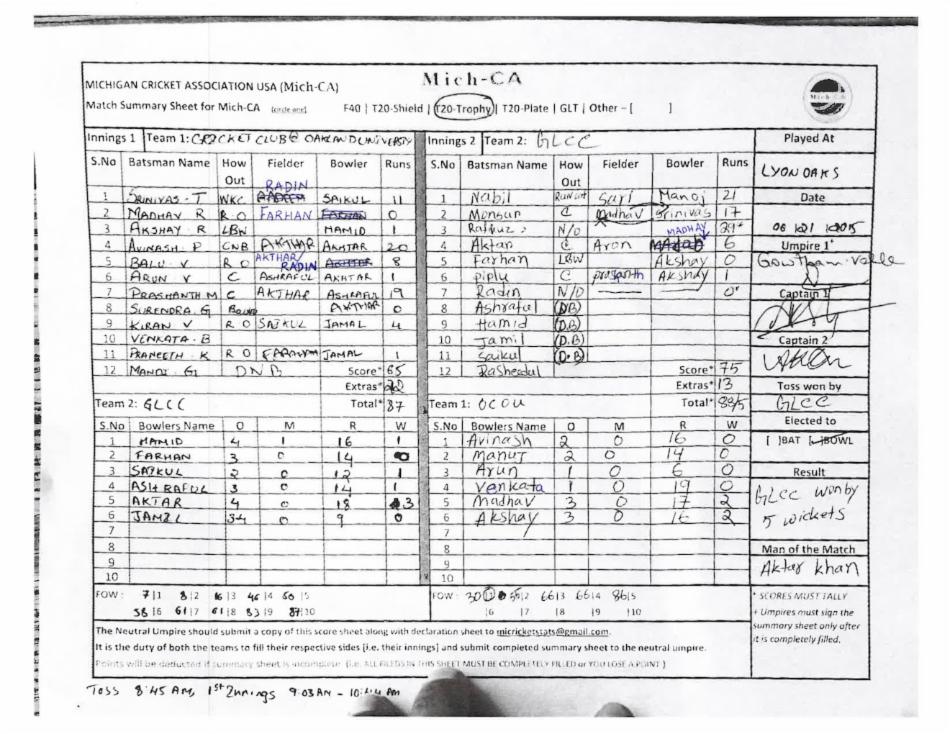 Mich-CA
MICHIGAN CRICKET ASSOCIATION USA (Mich-CA)
Match Summary Sheet for Mich-CA (circle one) F40 | T20-Shield | T20-Trophy | T20-Plate | GLT | Other – [ ]
Innings 1 Team 1: CRICKET CLUB @ OAKLAND UNIVERSITY
S.No Batsman Name How Out Fielder Bowler Runs
1 SRINIVAS - T WKC RADIN SAIKUL 11
2 MADHAV R R O FARHAN 0
3 AKSHAY R LBW HAMID 1
4 AVINASH P CNB AKTHAR AKHTAR 20
5 BALU V R O AKTHAR/ RADIN 8
6 ARUN V C ASHRAFUL AKHTAR 1
7 PRASHANTH M C AKTHAR ASHRAFUL 19
8 SURENDRA. G Bowl AKTHAR 0
9 KIRAN V R O SAIKUL JAMAL 4
10 VENKATA - B
11 PRANEETH - K R O JAMAL 1
12 MANOJ G DNB Score* 65
Extras* 22
Total* 87
Innings 2 Team 2: GLCC
S.No Batsman Name How Out Fielder Bowler Runs
1 Nabil Run out Sari Manoj 21
2 Monsur C Madhav Srinivas 17
3 N/O
4 Aktar C Aron MADHAV 6
5 Farhan LBW Akshay 0
6 piplu C prasanth Akshay 1
7 Radin N/O 0*
8 Ashraful (DB)
9 Hamid (D.B)
10 Jamil (D.B)
11 Saikul (D.B)
12 Rasheedul Score* 75
Extras* 13
Total* 88/5
Team 2: GLCC
S.No Bowlers Name O M R W
1 HAMID 4 1 16 1
2 FARHAN 3 0 14 0
3 SAIKUL 2 0 12 1
4 ASHRAFUL 3 0 14 1
5 AKTAR 4 0 18 3
6 JAMIL 3.4 0 9 0
7
8
9
10
Team 1: OCOU
S.No Bowlers Name O M R W
1 Avinash 2 0 16 0
2 Manuj 2 0 14 0
3 Arun 1 0 6 0
4 Venkata 1 0 19 0
5 Madhav 3 0 17 2
6 Akshay 3 0 16 2
7
8
9
10
FOW: 7|1 8|2 16|3 46|4 50|5
58|6 61|7 61|8 83|9 87|10
FOW: 30|1 55|2 66|3 66|4 86|5
|6 |7 |8 |9 |10
Played At
LYON OAKS
Date
06 |21 |2015
Umpire 1+
Captain 1
Captain 2
Toss won by
GLCC
Elected to
[ ]BAT [ ]BOWL
Result
GLCC won by
5 wickets
Man of the Match
Aktar khan
* SCORES MUST TALLY
+ Umpires must sign the
summary sheet only after
it is completely filled.
The Neutral Umpire should submit a copy of this score sheet along with declaration sheet to micricketstats@gmail.com.
It is the duty of both the teams to fill their respective sides [i.e. their innings] and submit completed summary sheet to the neutral umpire.
Points will be deducted if summary sheet is incomplete (i.e. ALL FILEDS IN THIS SHEET MUST BE COMPLETELY FILLED or YOU LOSE A POINT )
Toss 8:45 AM, 1st Innings 9:03 AM - 10:44 AM